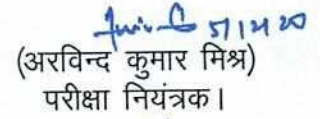 5/12/20
(अरविन्द कुमार मिश्र)
परीक्षा नियंत्रक।